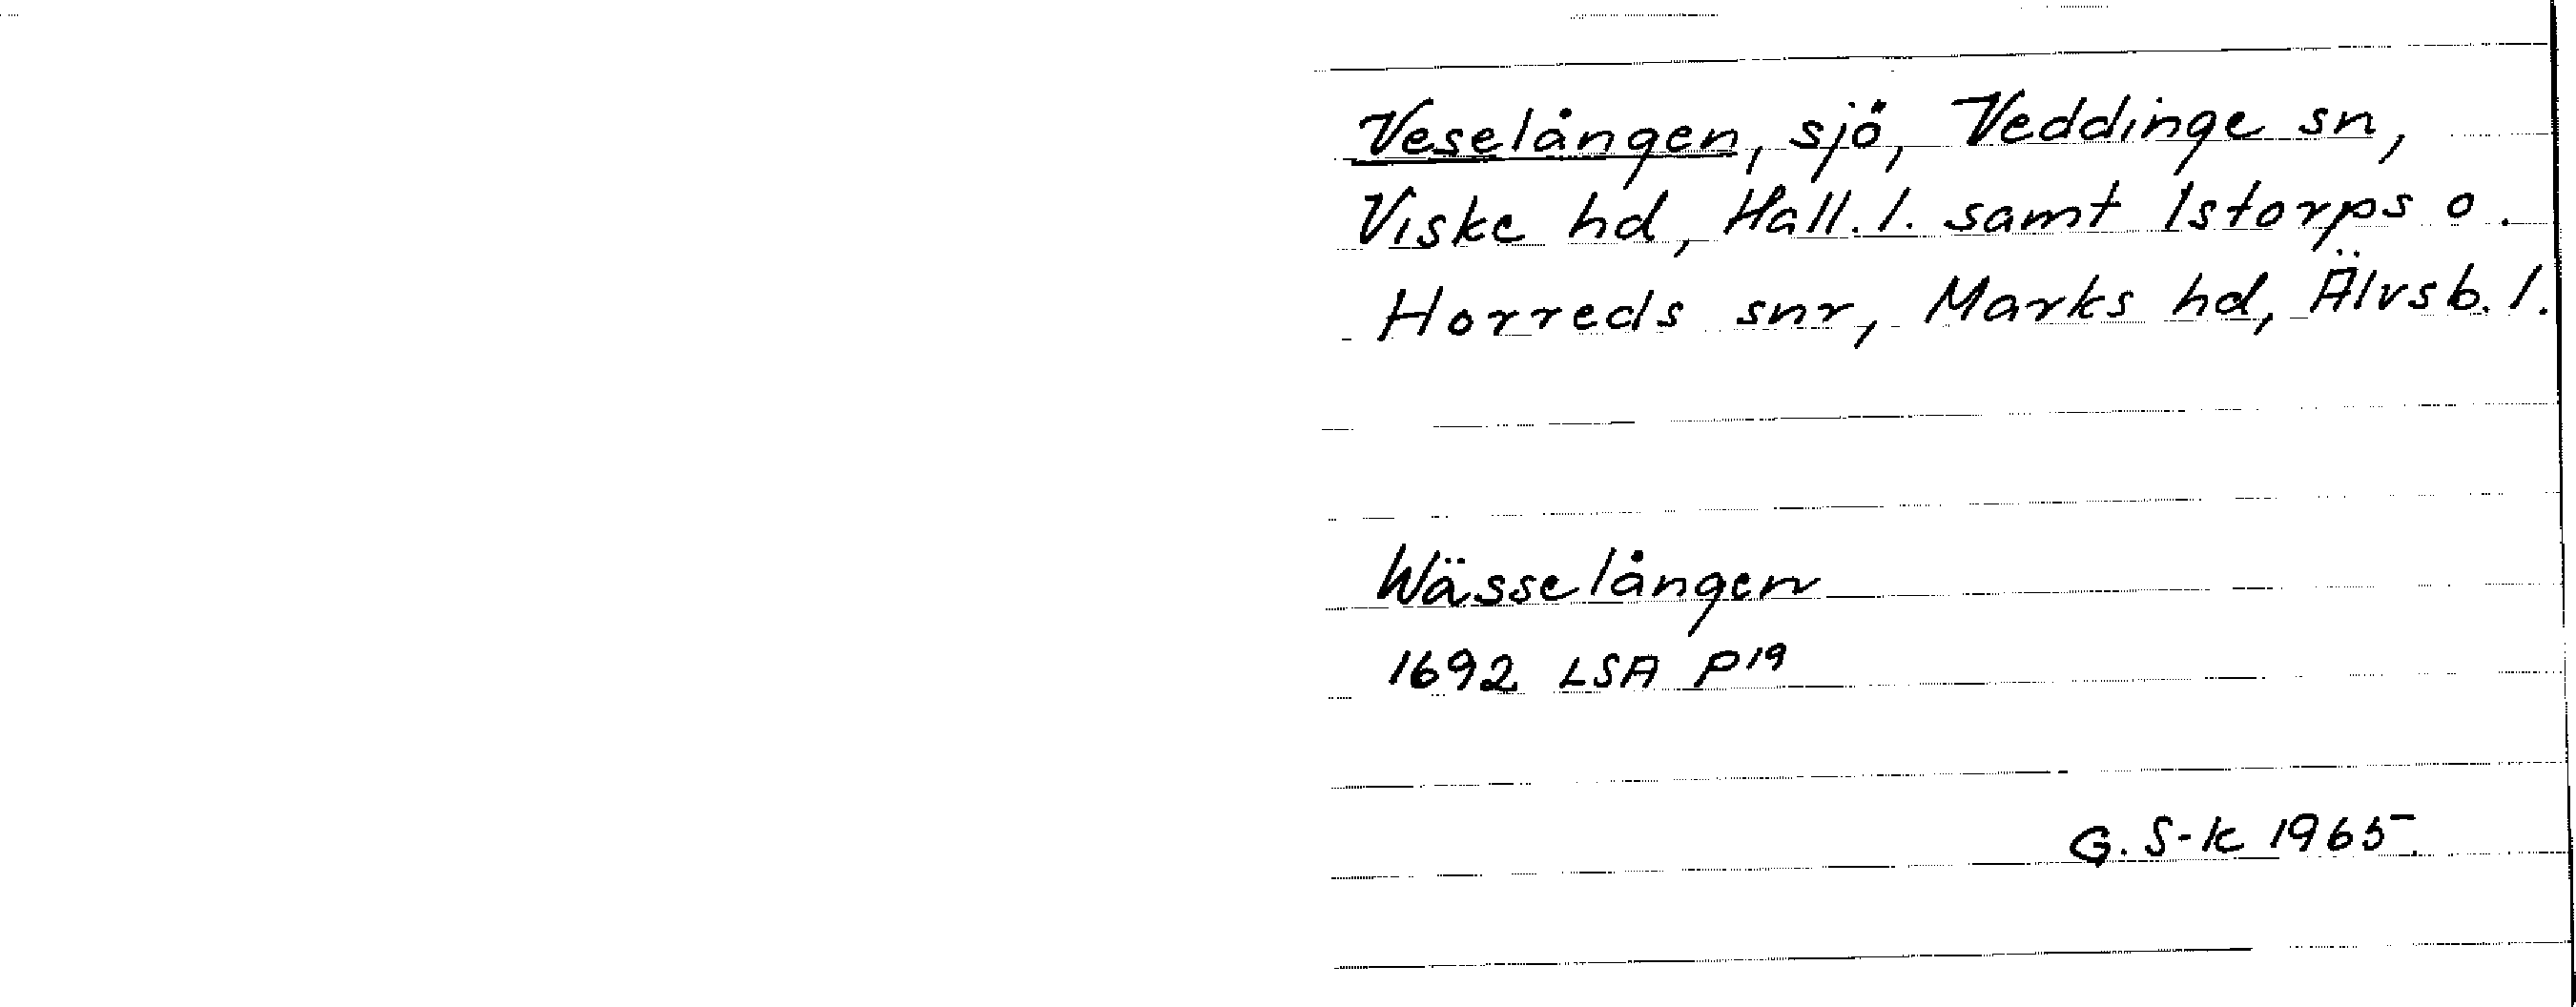 Veselången, sjö, Veddinge sn,
Viske hd, Hall. l. samt Istorps o.
Horreds snr, Marks hd, Älvsb. l.
Wässelången
1692 LSA P19
G. S-k 1965.